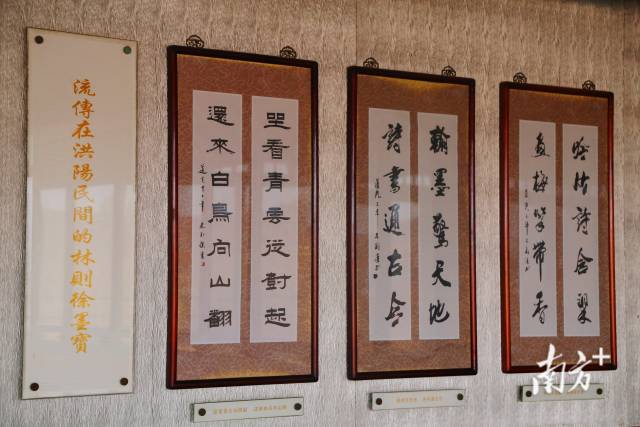 流傳在洪陽民間的林則徐墨寶
坐看青雲從對起
還來白鳥向山翻
翰墨驚天地
詩書通古今
吟竹詩含翠
畫梅筆帶香
南方+